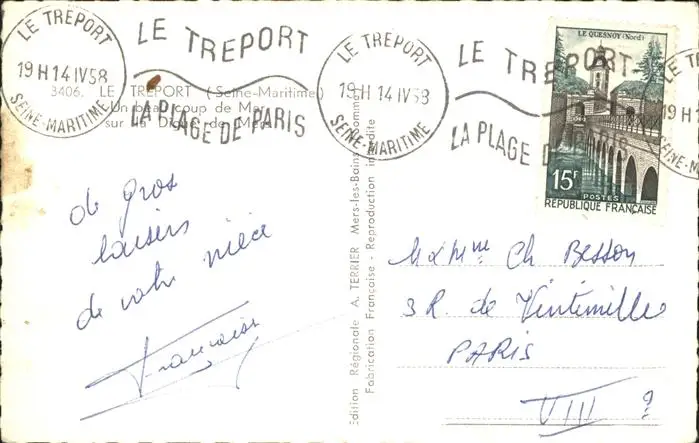 LE TREPORT
19 H 14 IV 58
SEINE-MARITIME
LE TREPORT
LA PLAGE DE PARIS
LE TREPORT
19 H 14 IV 58
SEINE-MARITIME
LE TREPORT
LA PLAGE D
LE TREPORT
19 H 1
SEINE-MARITIME
3406. LE TREPORT (Seine-Maritime)
Un beau coup de Mer
sur la Digue de Mers
LE QUESNOY (Nord)
15F
POSTES
REPUBLIQUE FRANÇAISE
de gros
baisers
de votre nièce
Françoise
Edition Régionale A. TERRIER Mers-les-Bains Somme
Fabrication Française - Reproduction interdite
M & Mme Ch Besson
3 R. de Vintimille
PARIS
VIII ?